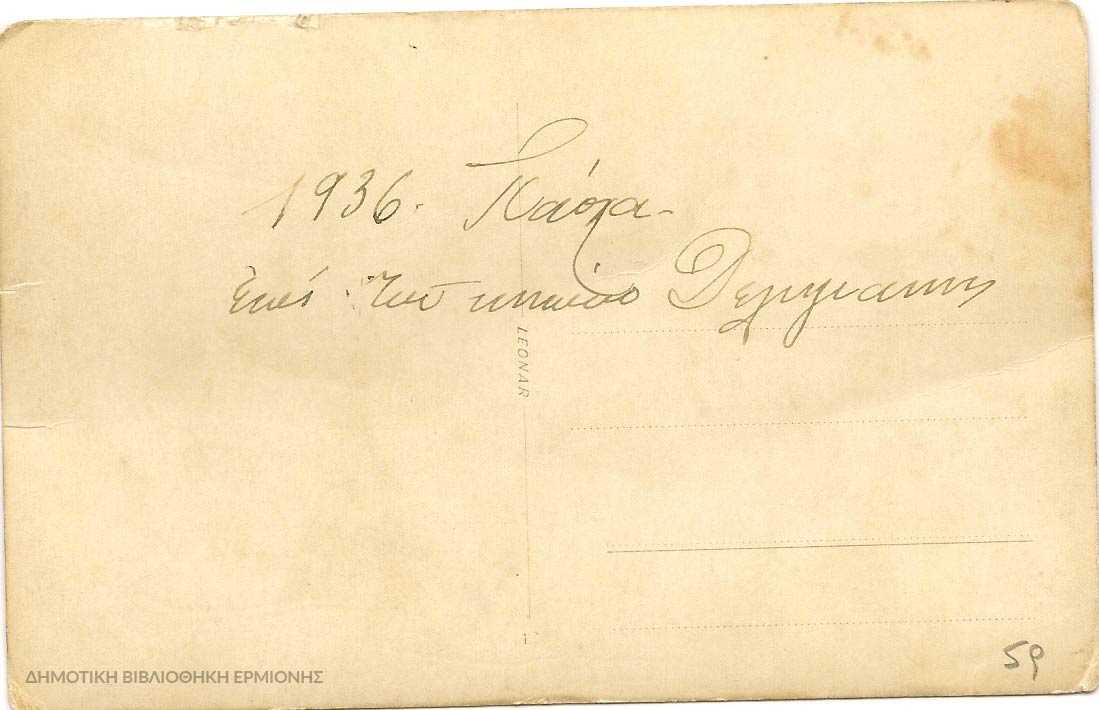 1936. Πάσχα -
στον κήπο Δεληγιάννη
LEONAR
59
ΔΗΜΟΤΙΚΗ ΒΙΒΛΙΟΘΗΚΗ ΕΡΜΙΟΝΗΣ